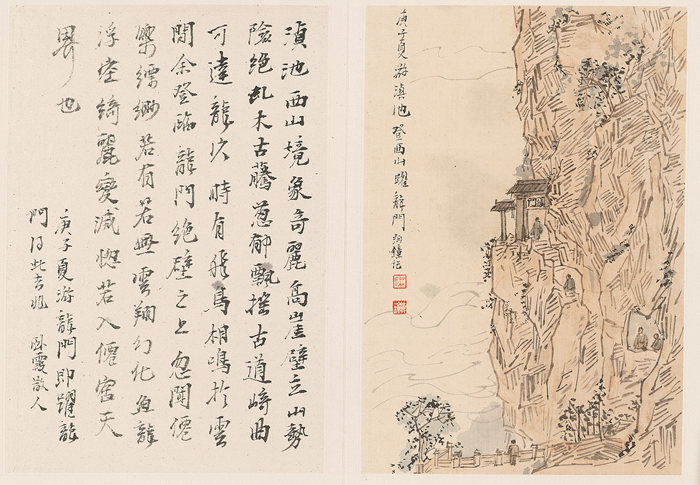 庚子夏游滇池登西山躍龍門
龍門
滇池西山境象奇麗高崖壁立山勢
險絕乱木古藤蔥郁飄搖古道崎曲
可達龍穴時有飛鳥相鳴於雲
間余登臨龍門絕壁之上忽聞僊
樂縹緲若有若無雲翔幻化魚龍
浮空綺麗變滅恍若入僊宮天
界也
庚子夏游龍門即躍龍
門得此吉兆 散人